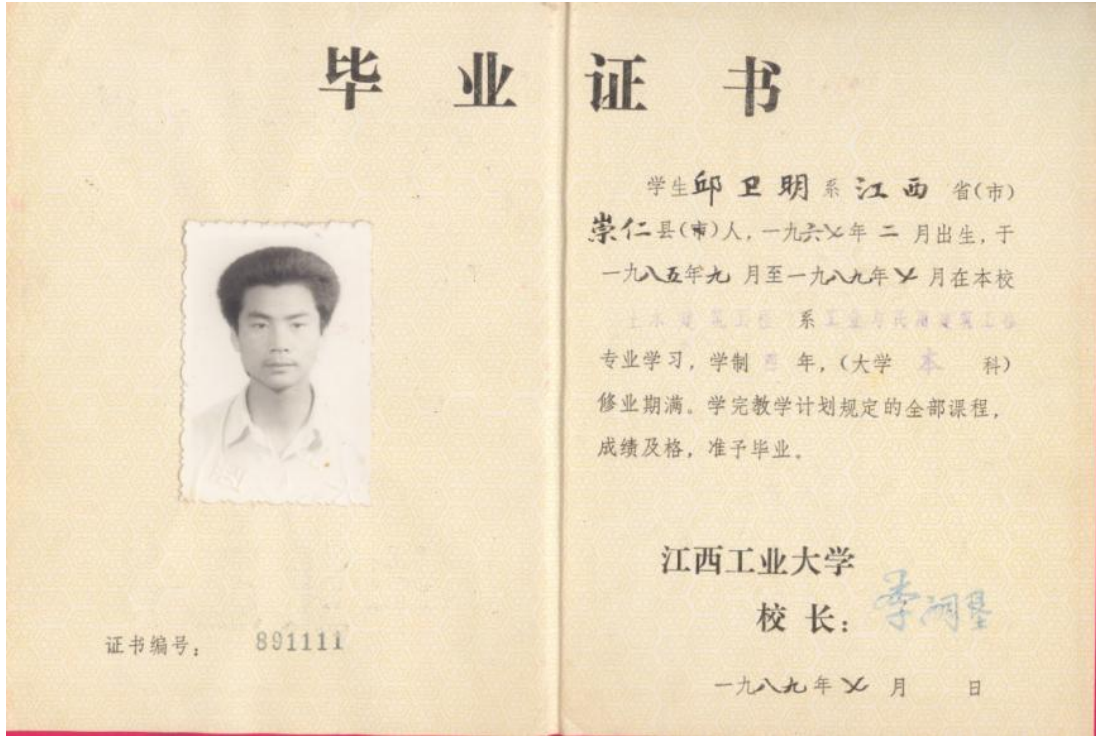 毕业证书
学生邱卫明系江西省(市)
崇仁县(市)人，一九六七年二月出生，于
一九八五年九月至一九八九年七月在本校
土木建筑工程系工业与民用建筑工程
专业学习，学制四年，(大学本科)
修业期满。学完教学计划规定的全部课程，
成绩及格，准予毕业。
江西工业大学
校长：
一九八九年七月 日
证书编号： 891111